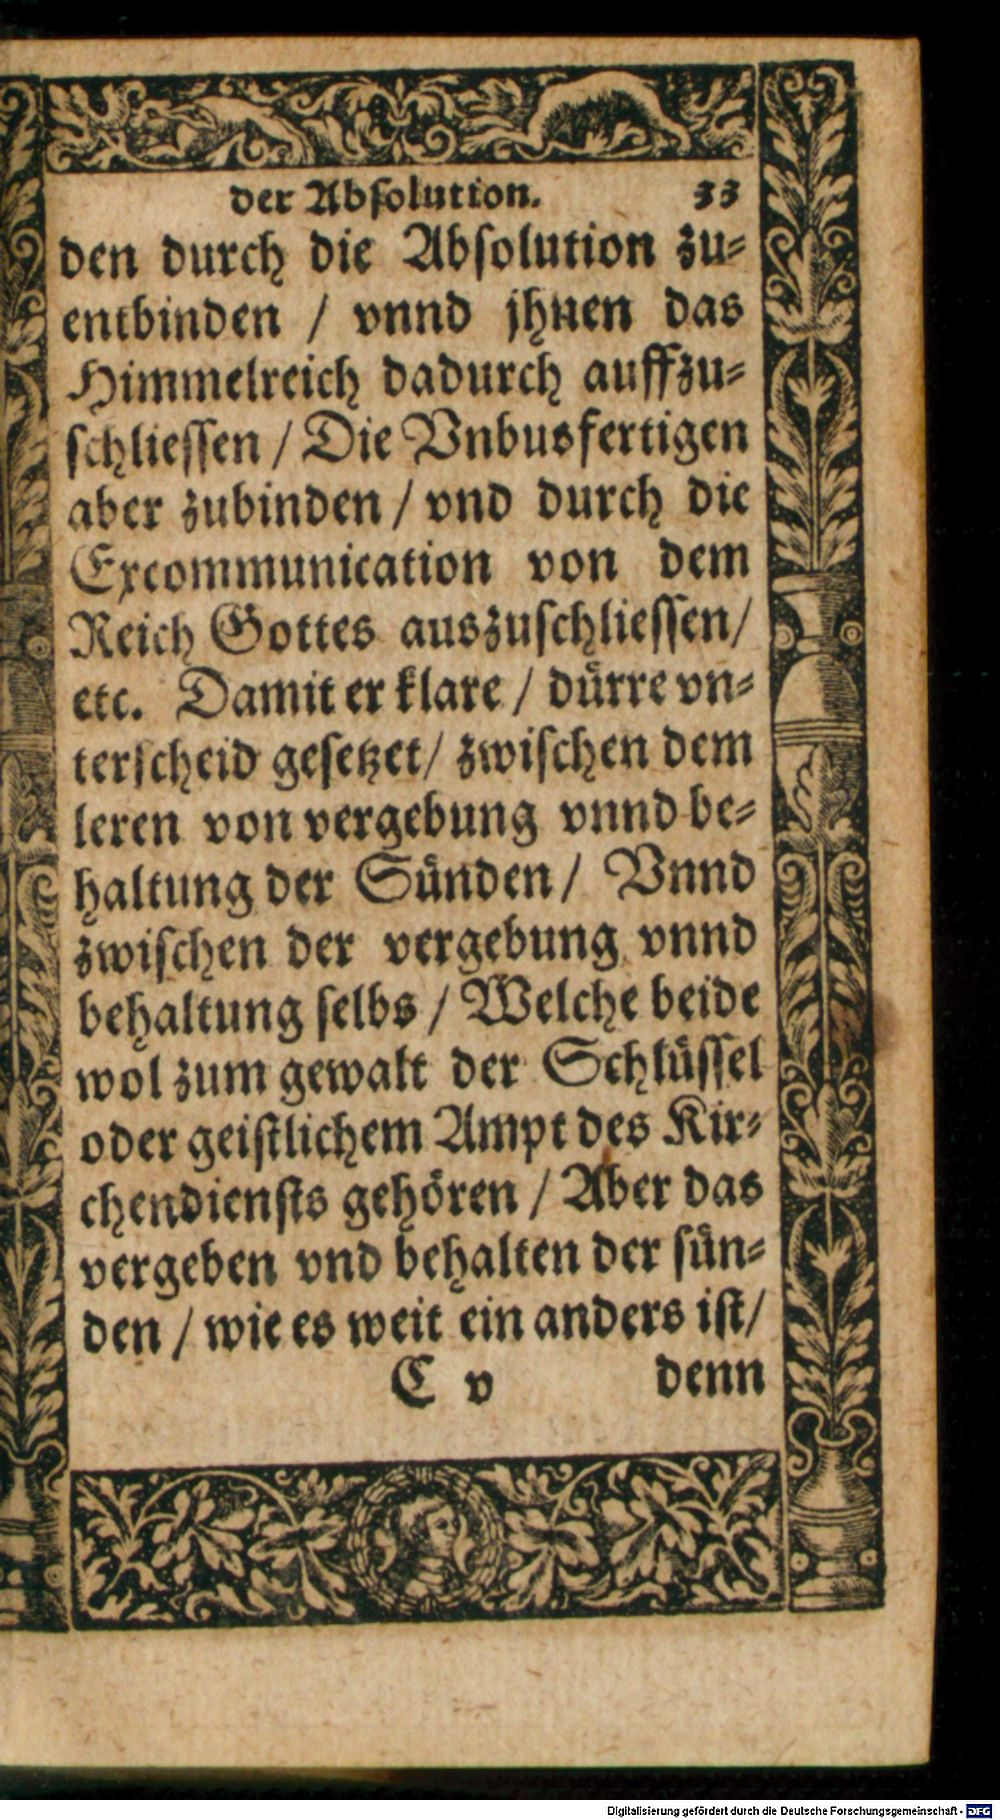 der Abſolution. 33
den durch die Abſolution zu⸗
entbinden / vnnd jhnen das
Himmelreich dadurch auffzu⸗
ſchlieſſen / Die Vnbusfertigen
aber zubinden / vnd durch die
Excommunication von dem
Reich Gottes auszuſchlieſſen/
etc. Damit er klare / duͤrre vn⸗
terſcheid geſetzet/ zwiſchen dem
leren von vergebung vnnd be⸗
haltung der Suͤnden / Vnnd
zwiſchen der vergebung vnnd
behaltung ſelbs / Welche beide
wol zum gewalt der Schluͤſſel
oder geiſtlichem Ampt des Kir⸗
chendienſts gehoͤren / Aber das
vergeben vnd behalten der ſuͤn⸗
den / wie es weit ein anders iſt/
C v denn
Digitalisierung gefördert durch die Deutsche Forschungsgemeinschaft - DFG